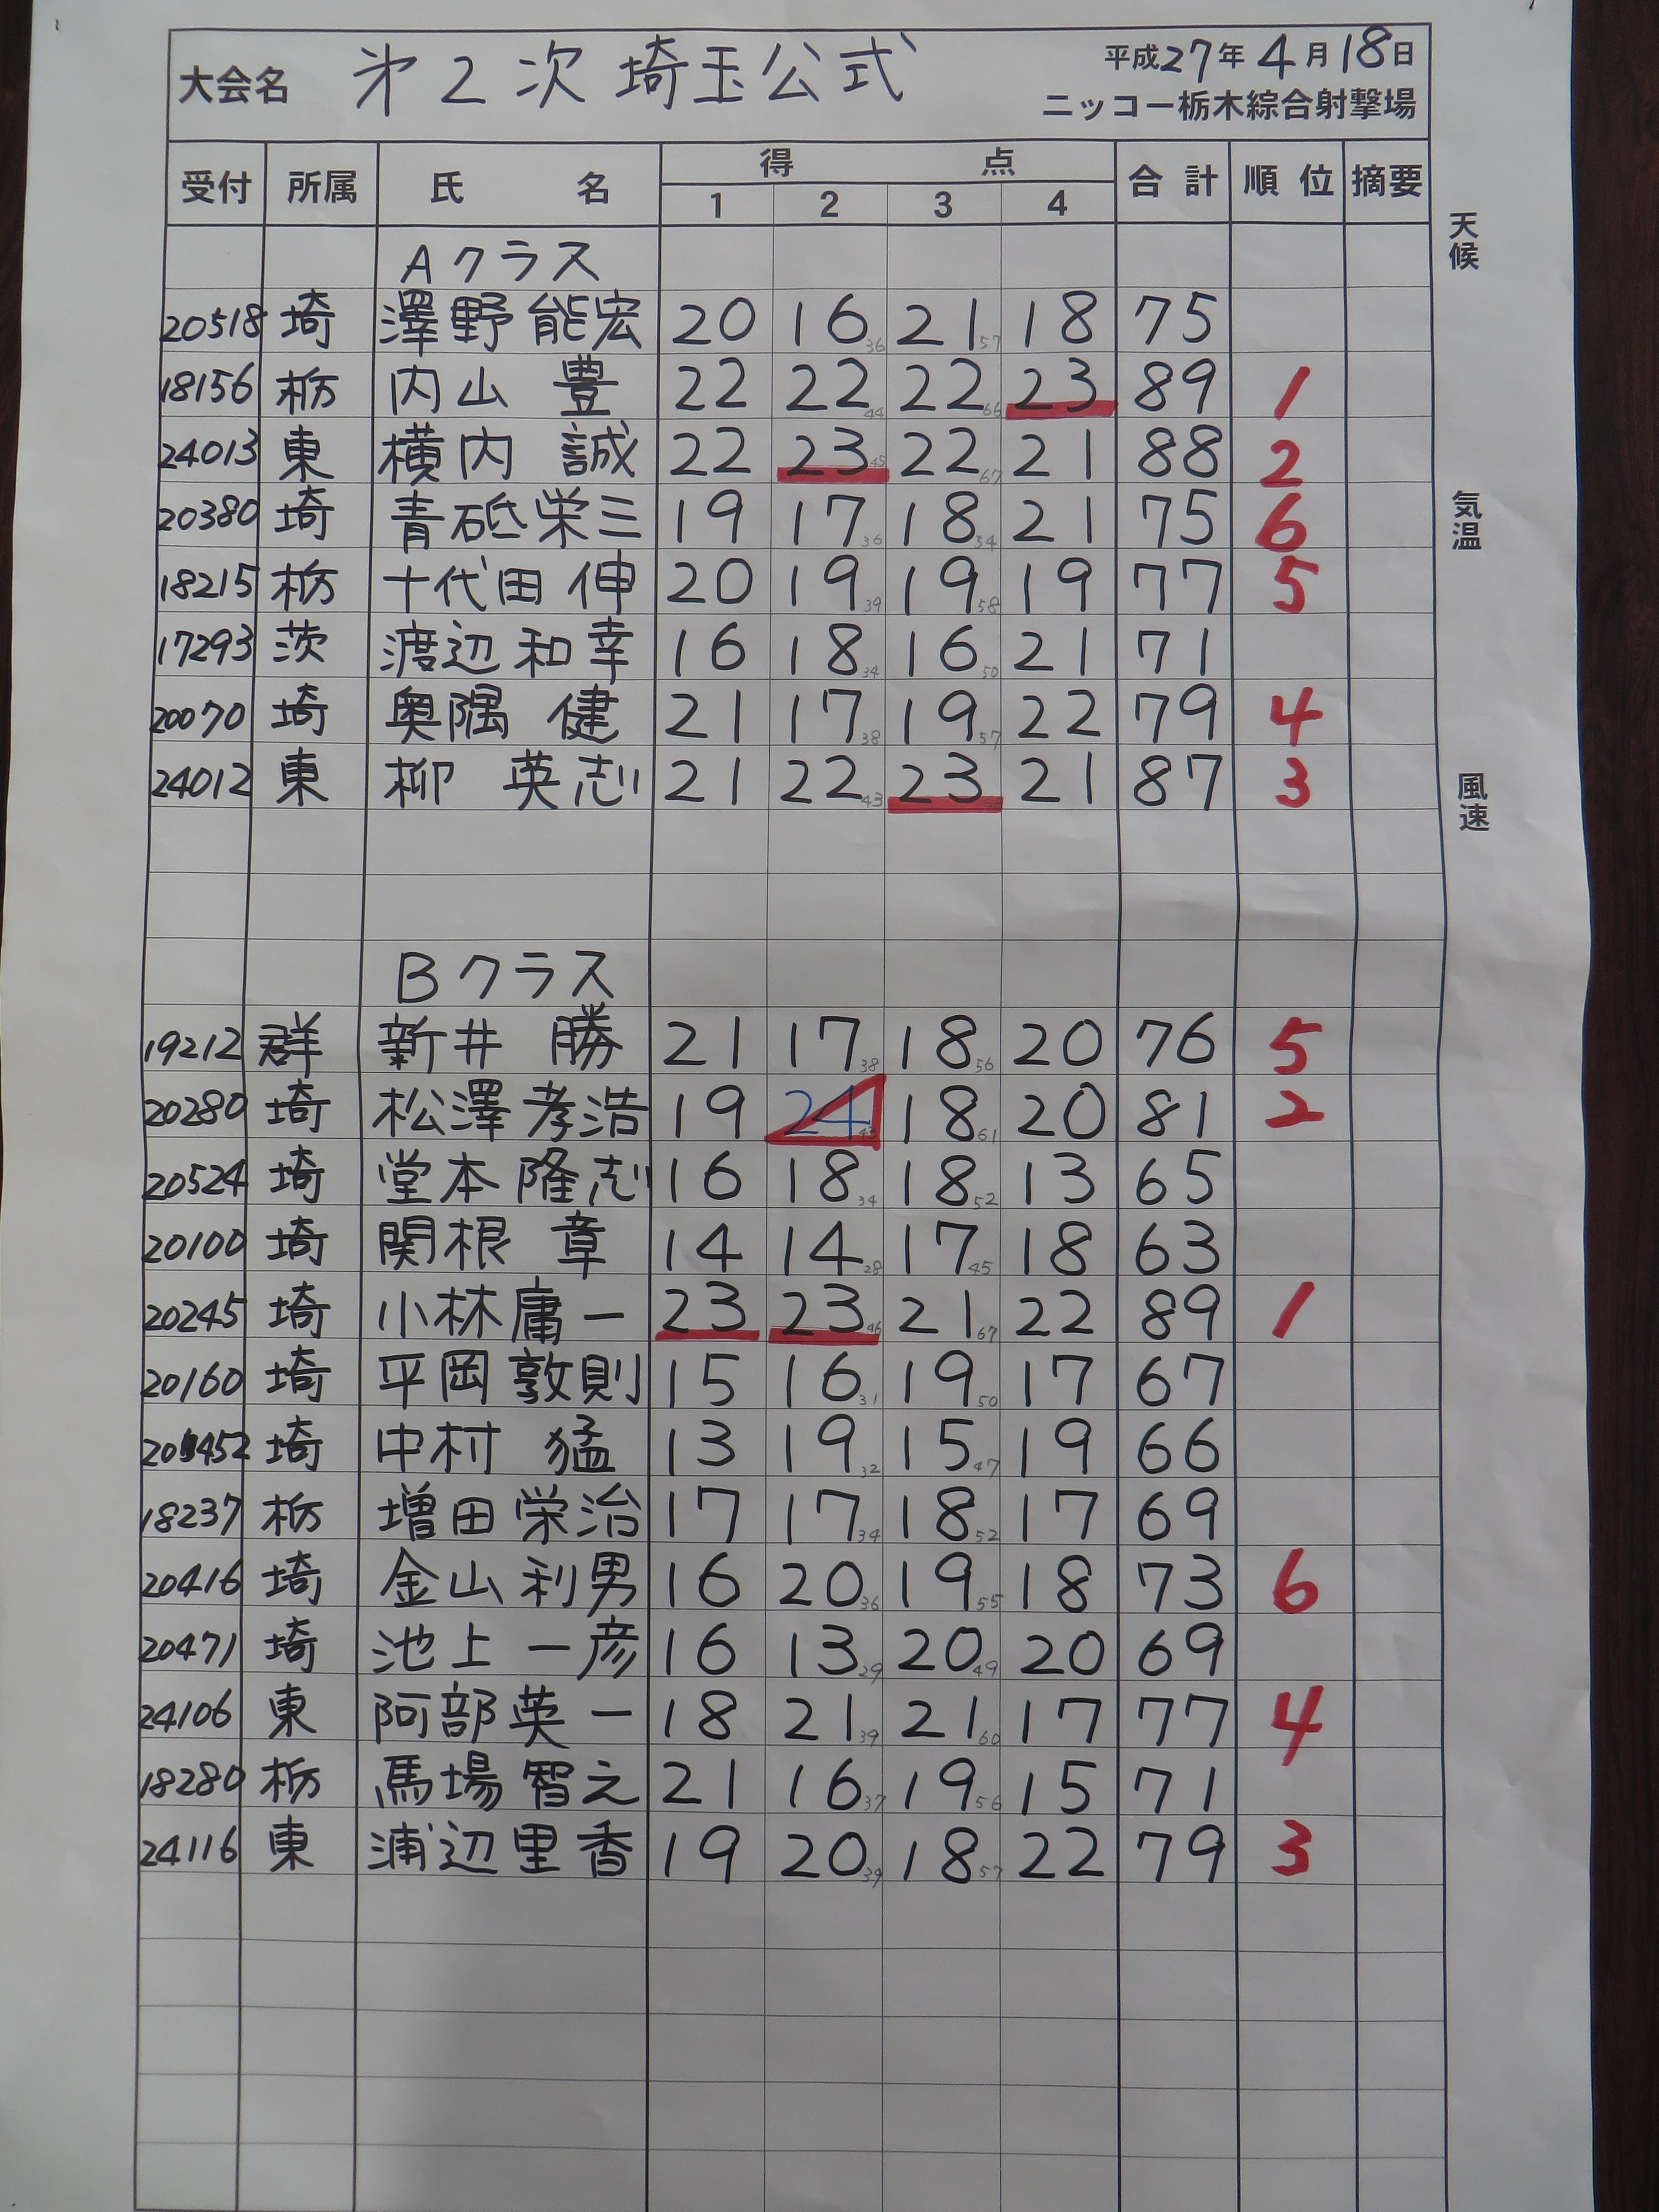 大会名 第2次 埼玉公式 平成27年4月18日
ニッコー栃木綜合射撃場
受付 所属 氏名 得点 合計 順位 摘要
1 2 3 4
天候
Aクラス
20518 埼 澤野能宏 20 16 36 21 57 18 75
18156 栃 内山 豊 22 22 44 22 66 23 89 1
24013 東 横内 誠 22 23 45 22 67 21 88 2
20380 埼 青砥栄三 19 17 36 18 54 21 75 6
気温
18215 栃 十代田 伸 20 19 39 19 58 19 77 5
17293 茨 渡辺和幸 16 18 34 16 50 21 71
20070 埼 奥隅 健 21 17 38 19 57 22 79 4
24012 東 柳 英志 21 22 43 23 21 87 3
風速
Bクラス
19212 群 新井 勝 21 17 38 18 56 20 76 5
20280 埼 松澤孝浩 19 24 43 18 61 20 81 2
20524 埼 堂本隆志 16 18 34 18 52 13 65
20100 埼 関根 章 14 14 28 17 45 18 63
20245 埼 小林庸一 23 23 46 21 67 22 89 1
20160 埼 平岡敦則 15 16 31 19 50 17 67
埼 中村 猛 13 19 32 15 47 19 66
18237 栃 増田栄治 17 17 34 18 52 17 69
20416 埼 金山利男 16 20 36 19 55 18 73 6
20471 埼 池上一彦 16 13 29 20 49 20 69
24106 東 阿部英一 18 21 39 21 60 17 77 4
18280 栃 馬場智之 21 16 37 19 56 15 71
24116 東 浦辺里香 19 20 39 18 57 22 79 3